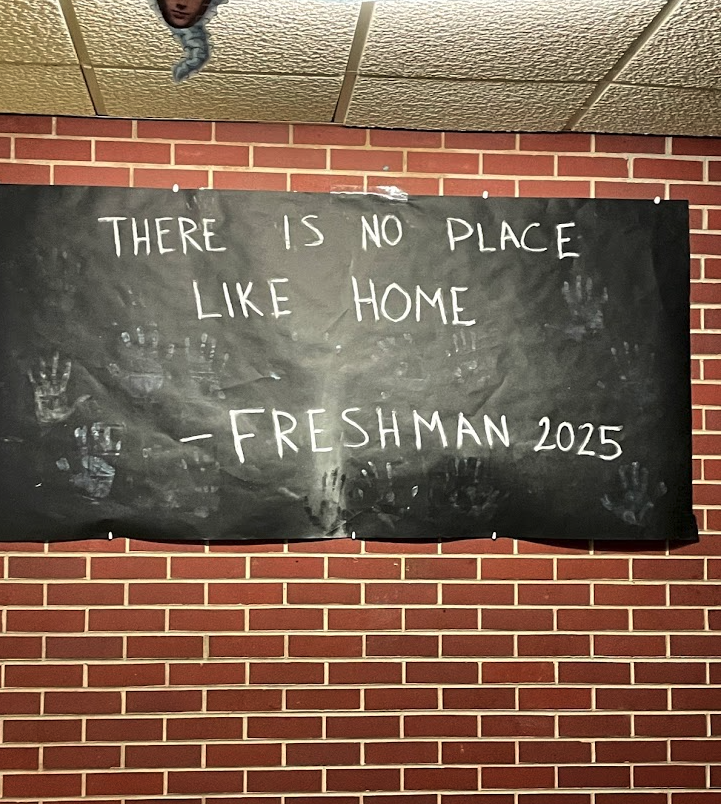 THERE IS NO PLACE
LIKE HOME
– FRESHMAN 2025